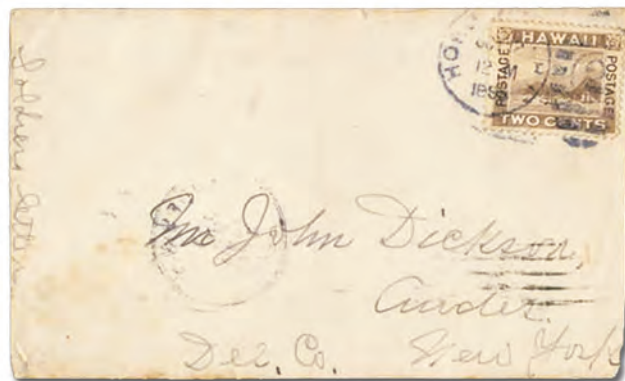 Soldiers letter
HAWAII
POSTAGE
POSTAGE
TWO CENTS
12 M
Mr John Dickson,
Andes
Del. Co. New York